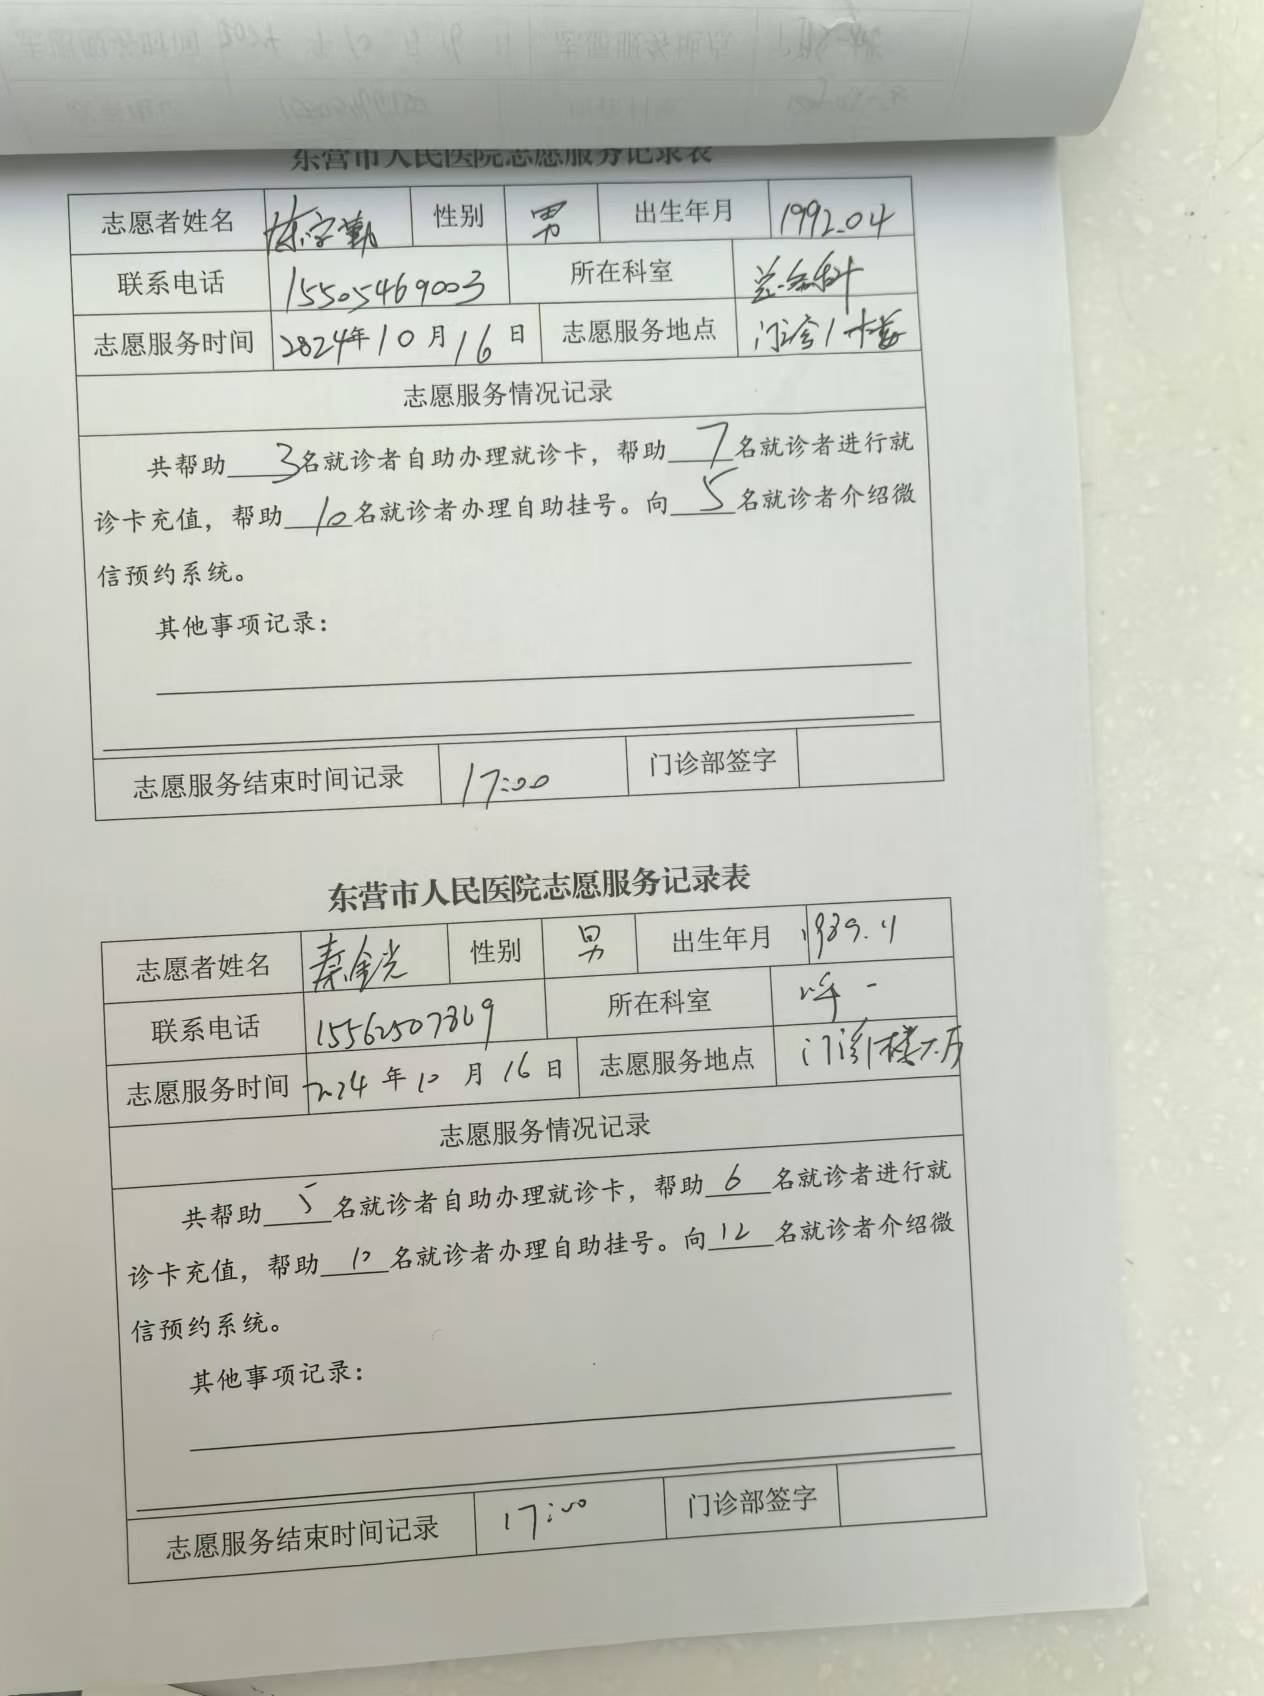 东营市人民医院志愿服务记录表
志愿者姓名 陈字勤 性别 男 出生年月 1992.04
联系电话 15505469003 所在科室
志愿服务时间 2024年10月16日 志愿服务地点 门诊1楼
志愿服务情况记录
共帮助3名就诊者自助办理就诊卡，帮助7名就诊者进行就
诊卡充值，帮助10名就诊者办理自助挂号。向5名就诊者介绍微
信预约系统。
其他事项记录：
志愿服务结束时间记录 17:00 门诊部签字
东营市人民医院志愿服务记录表
志愿者姓名 秦金光 性别 男 出生年月 1989.11
联系电话 所在科室 呼一
志愿服务时间 2024年10月16日 志愿服务地点 门诊1楼大厅
志愿服务情况记录
共帮助5名就诊者自助办理就诊卡，帮助6名就诊者进行就
诊卡充值，帮助名就诊者办理自助挂号。向12名就诊者介绍微
信预约系统。
其他事项记录：
志愿服务结束时间记录 17:00 门诊部签字